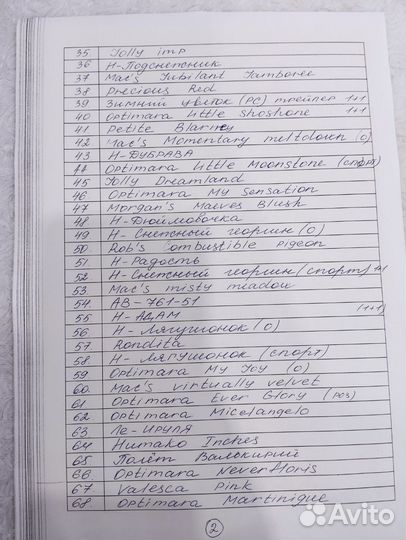 35. Jolly imp
36 Н-Подснежник
37 Mac's Jubilant Jamboree
38 Precious Red
39 Зимний цветок (РС) трейлер 1+1
40 Optimara Little Shoshone 1+1
41 Petite Blarney
42 Mac's Momentary meltdown (О)
43 Н-ДУБРАВА
44 Optimara Little Moonstone (спорт)
45 Jolly Dreamland
46 Optimara My Sensation
47 Morgan's Maeves Blush
48 Н-Дюймовочка
49 Н-Снежный георгин (О)
50. Rob's Combustible pigeon
51 Н-Радость
52 Н-Снежный георгин (спорт) 1+1
53. Mac's misty meadow
54. АВ-761-51
55 Н-АДАМ (1+1)
56. Н-Лягушонок (О)
57 Rondita
58. Н-Лягушонок (спорт)
59 Optimara My Joy (О)
60. Mac's virtually velvet
61 Optimara Ever Glory (pos)
62. Optimara Micelangelo
63. Ле-Ируля
64 Humako Inches
65 Полёт Валькирий
66. Optimara NeverFloris
67 Valesca Pink
68. Optimara Martinique
2
Avito